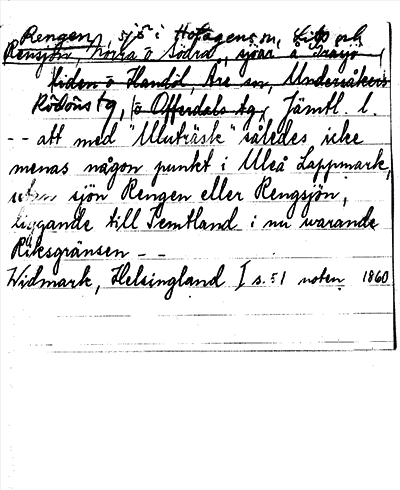 Rengen, sjö i Hotagens sn,
Rensjön, Norra o Södra, sjöar å
Kiden o Handöl, Åre sn, Undersåkers
Rödöns tg, o Offerdals tg, Jämtl. l.
-- att med "Uluträsk" således icke
menas någon punkt i Uleå Lappmark,
utan sjön Rengen eller Rengsjön,
liggande till Jemtland i nu warande
Riksgränsen --
Widmark, Helsingland I s. 51 noten 1860